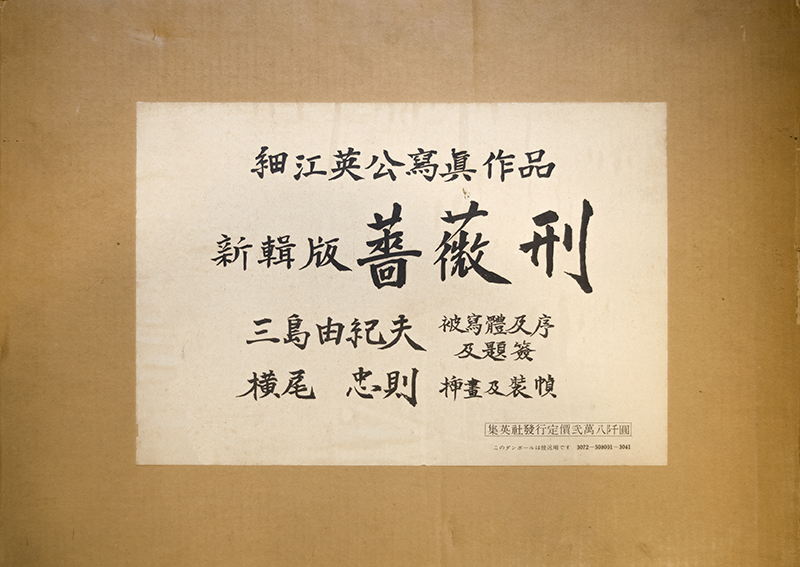 細江英公寫眞作品
新輯版 薔薇刑
三島由紀夫 被寫體及序
及題簽
橫尾 忠則 挿畫及装幀
集英社發行定價弐萬八阡圓
このダンボールは輸送用です 3072-508091-3041